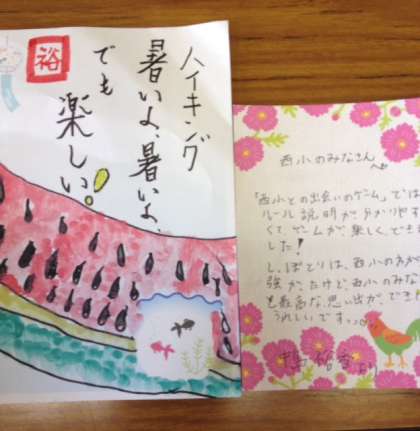 ハイキング
暑いよ、暑いよ、
でも
楽しい!
裕
西小のみなさんへ
「西小との出会いのゲーム」では
ルール説明が分かりやす
くて、ゲームが、楽しく、でき
した!
しっぽとりは、西小のみが
強かったけど、西小のみな
最高な、思い出が、でき
うれしいです。
より